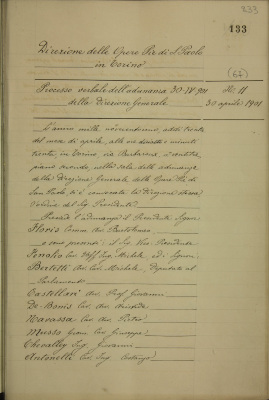 133
133
Direzione delle Opere Pie di S. Paolo
in Torino
(67)
Processo verbale dell'adunanza 30-IV-901
della Direzione Generale.
N. 11
30 aprile 1901
L'anno mille novecentouno, addì trenta
del mese di aprile, alle ore diciotto e minuti
trenta, in Torino, via Barbaroux,
piano secondo nella sala delle adunanze
della Direzione Generale delle Opere Pie di
San Paolo, si è convocata la Direzione stessa
del Sig. Presidente.
Presiede l'adunanza il Presidente Signor
Floris Comm. Avv. Bartolomeo
e sono presenti: il Sig. Vice Presidente
Cav. Uff. Ing. Michele, ed i Signori
Bertetti Avv. Cav. Michele, deputato al
Parlamento
Castellari Avv. Prof. Giovanni
De Bonis Cav. Avv.
Cav. Avv. Pietro
Musso Cav. Giuseppe
Chevalley Ing. Giovanni
Antonelli Cav. Ing. Costanzo